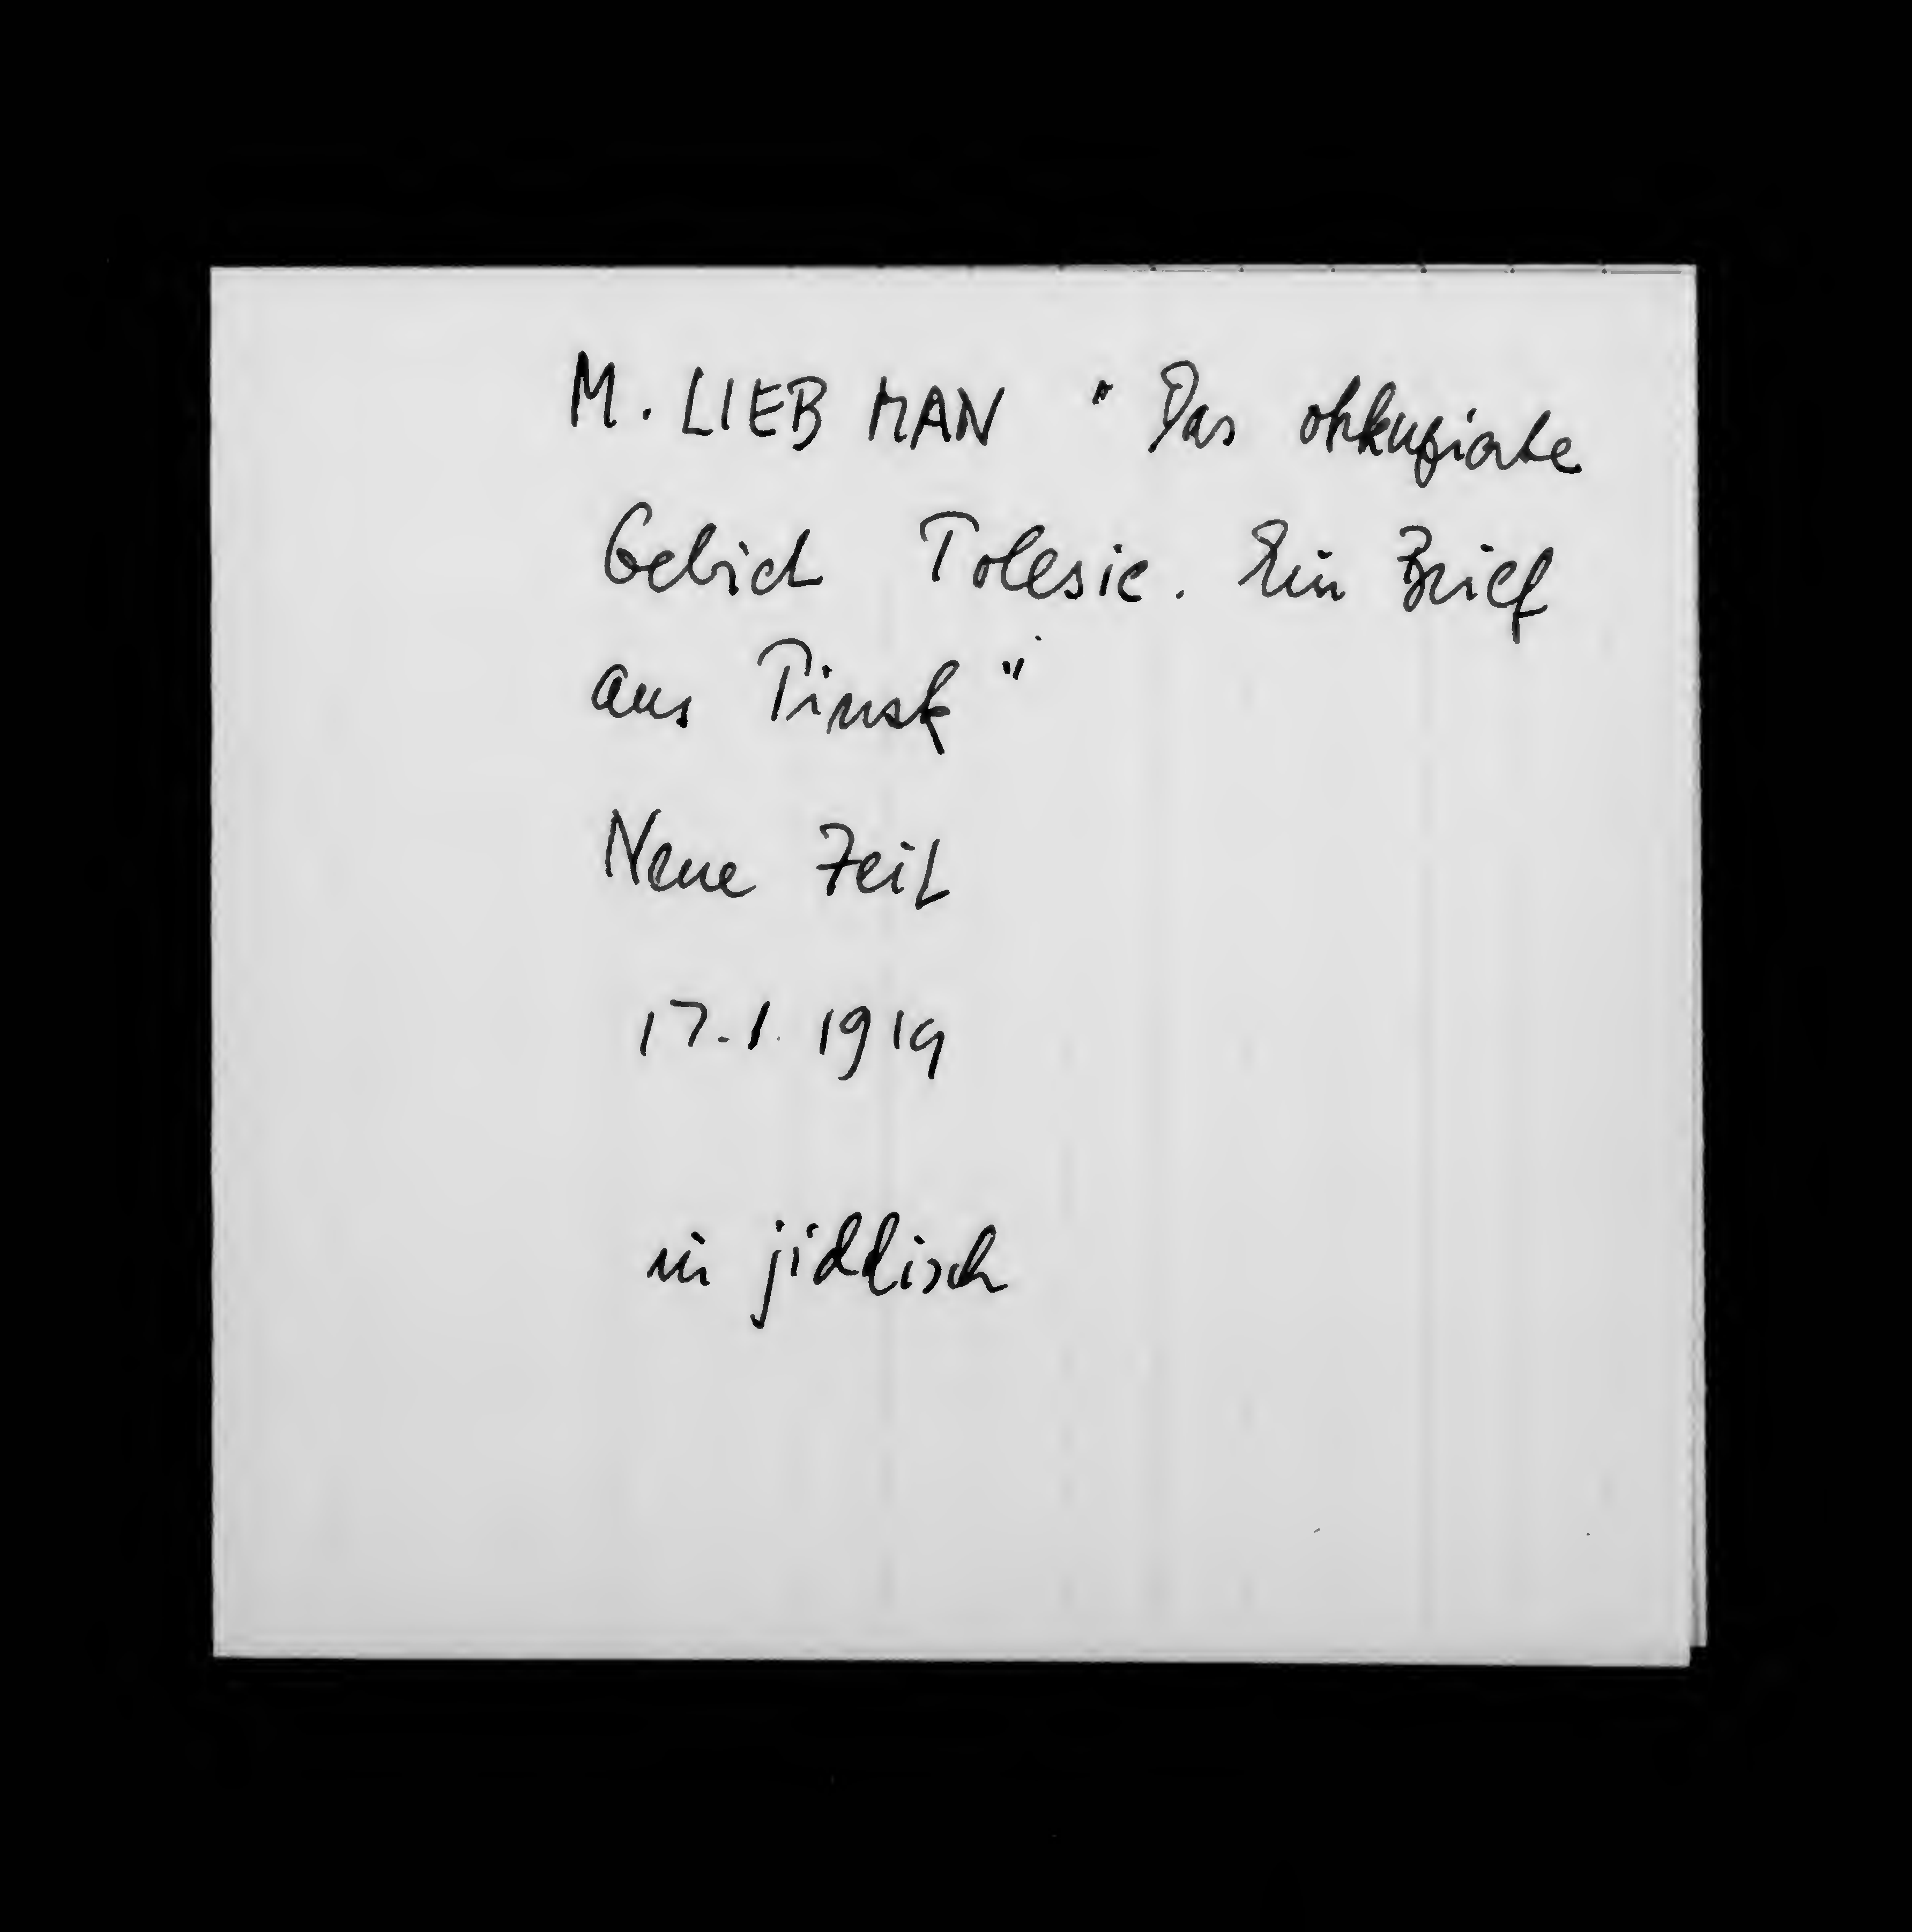 M. LIEBMAN "Das okkupierte
Gebiet Polesie. Ein Brief
aus Pinsk"
Neue Zeit
17.1.1919
in jiddisch